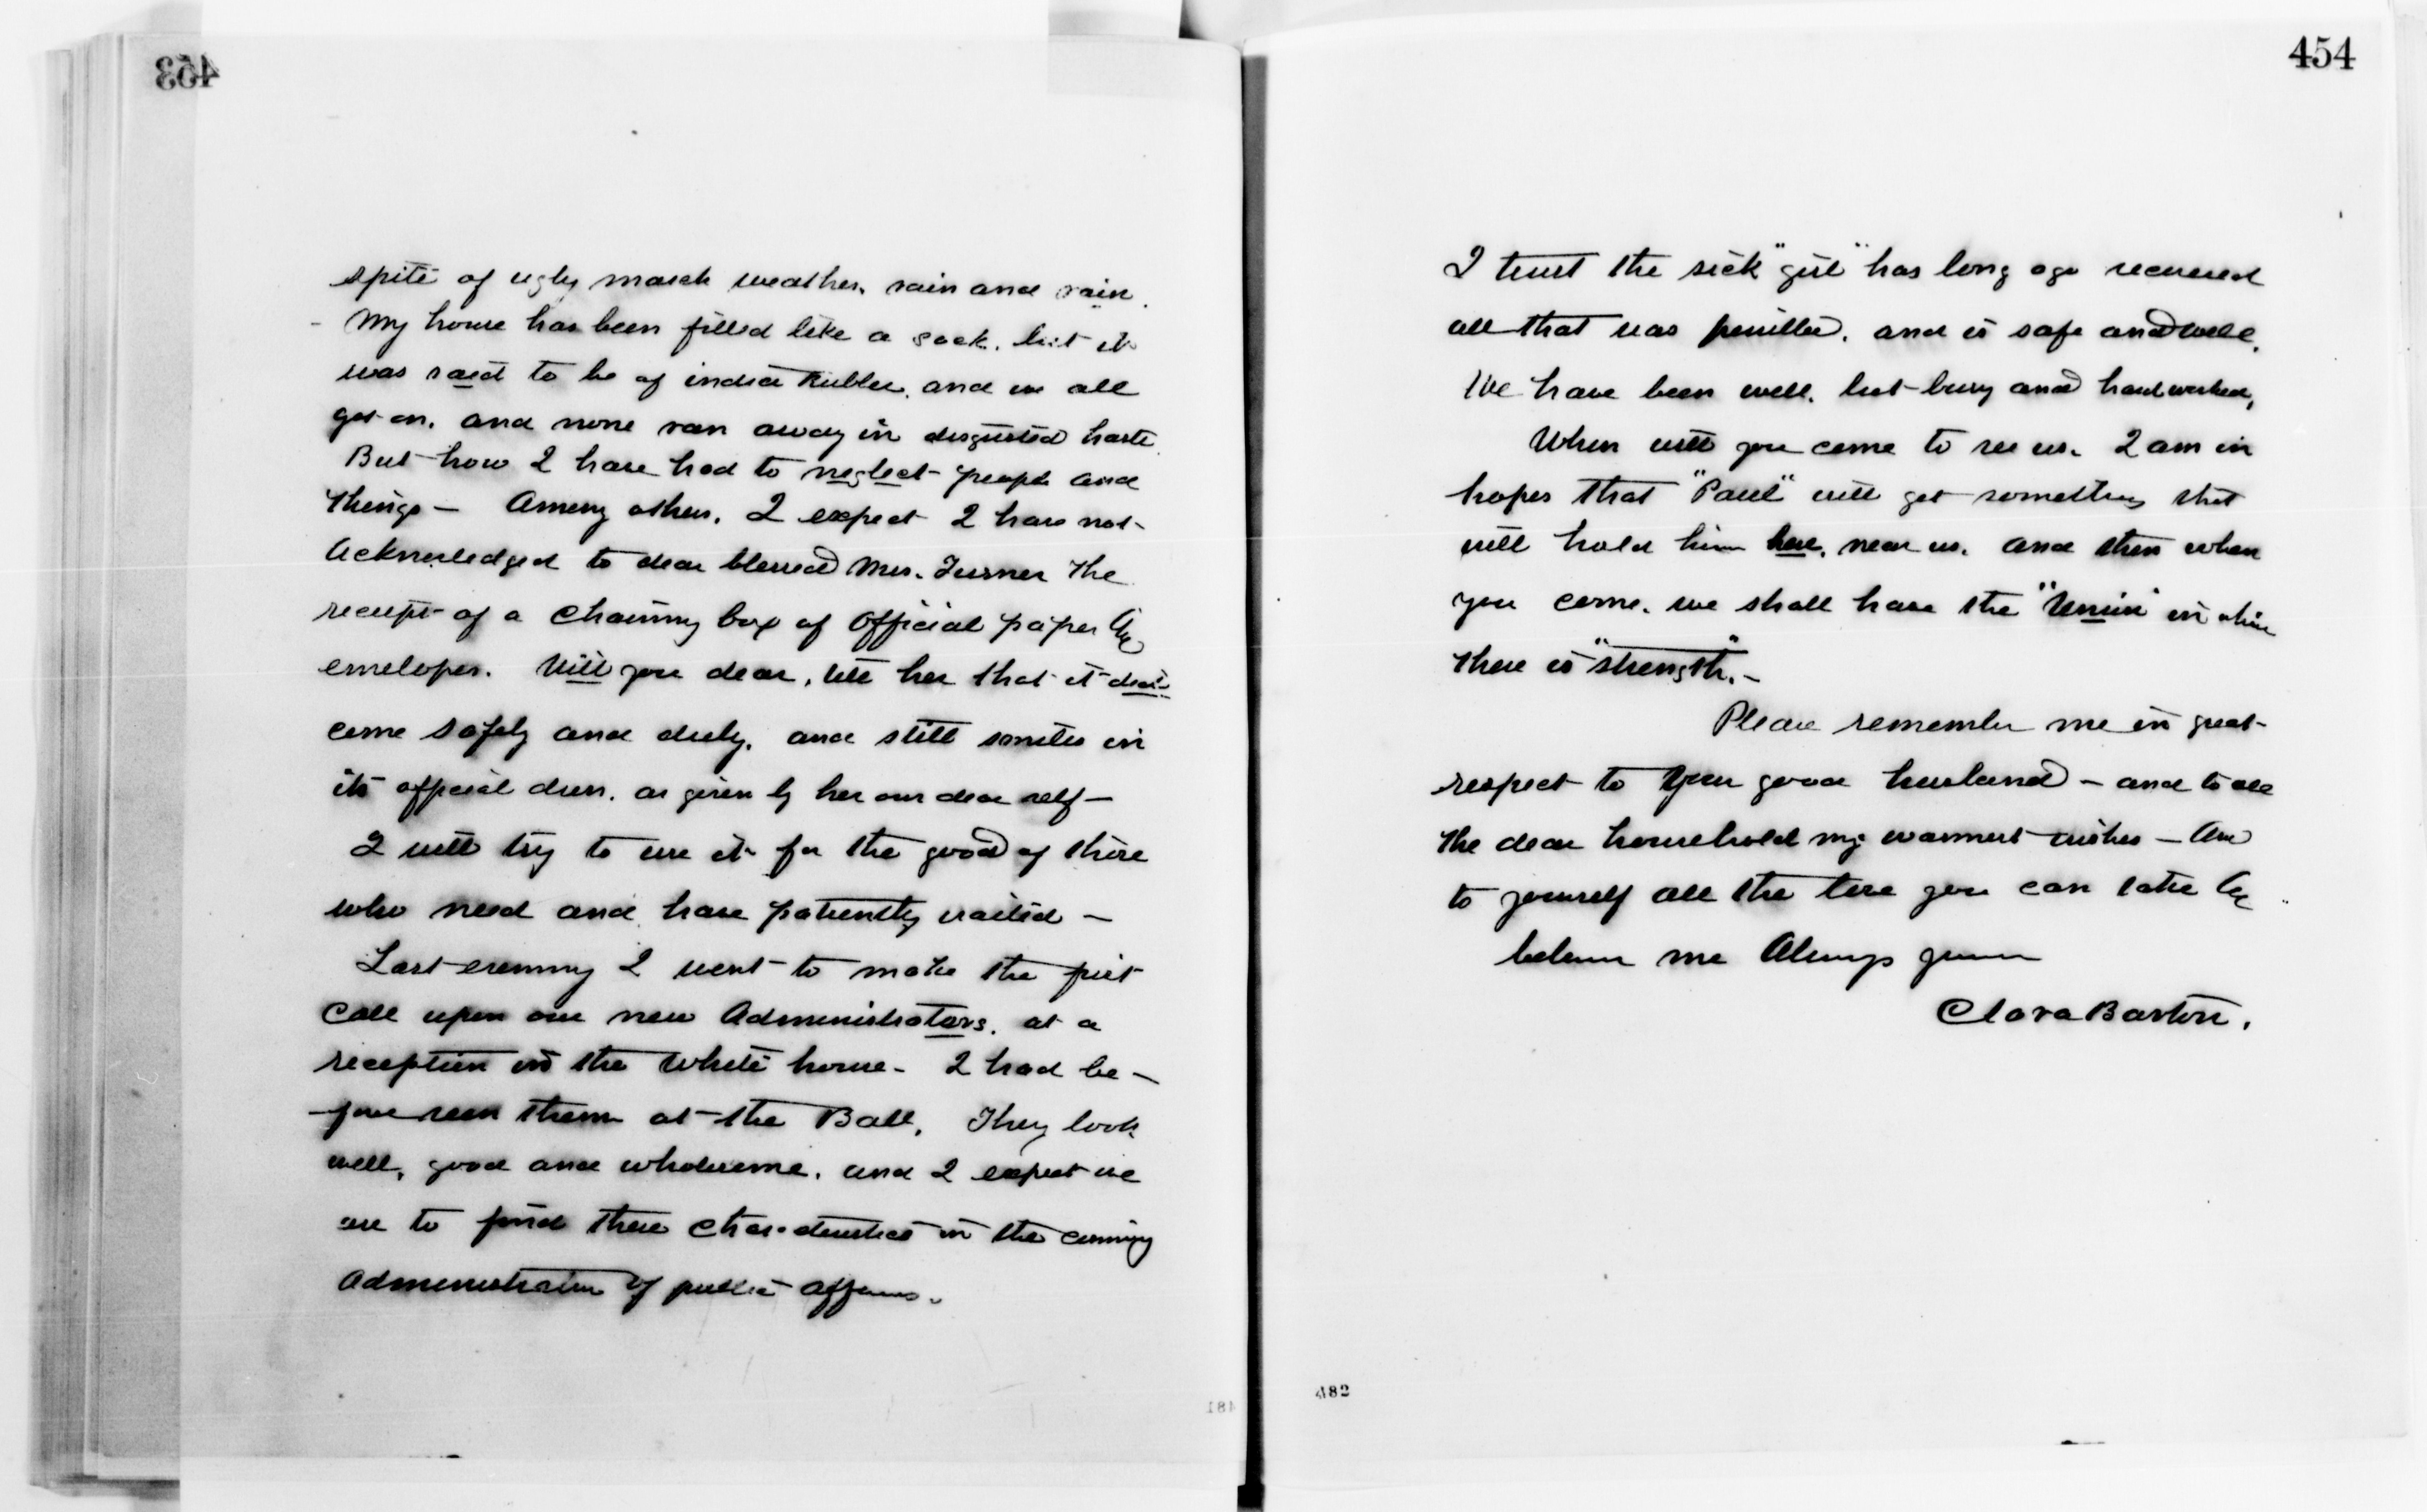 453
spite of ugly march weather, rain and rain.
- My house has been filled like a sack, but it
was said to be of india Rubber, and we all
got on, and none ran away in disgusted haste.
But how I have had to neglect people and
things — Among others, I expect I have not
Acknowledged to dear blessed Mrs. Turner the
receipt of a Charming box of Official paper &
envelopes. Will you dear, tell her that it did
come safely and duly, and still smiles in
its official dress, as given by her own dear self —
I will try to use it for the good of those
who need and have patiently waited —
Last evening I went to make the first
Call upon our new Administrators, at a
reception in the White house. I had be-
-fore seen them at the Ball, They look
well, good and wholesome, and I expect we
are to find these Characteristics in the coming
Administration of public affairs.
481
454
I trust the sick "girl" has long ago recovered
all that was possible, and is safe and well.
We have been well, but busy and hard worked,
When will you come to see us. I am in
hopes that "Paul" will get something that
will hold him here, near us, and then when
you come, we shall have the "Union" in which
there is "strength". -
Please remember me in great
respect to your good husband — and to all
the dear household my warmest wishes — And
to yourself all the love you can take &
believe me Always yours
Clara Barton.
482